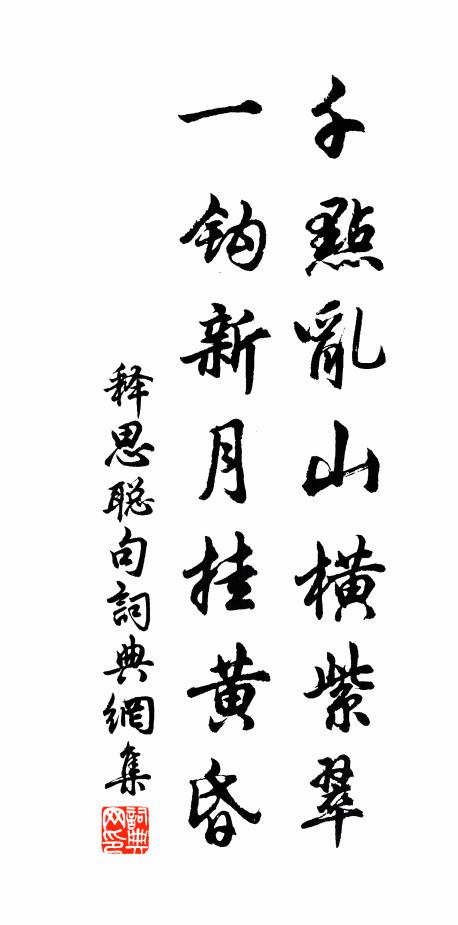 千點亂山橫紫翠
一鈎新月挂黄昏
释思聪句詞典網集
詞典网印